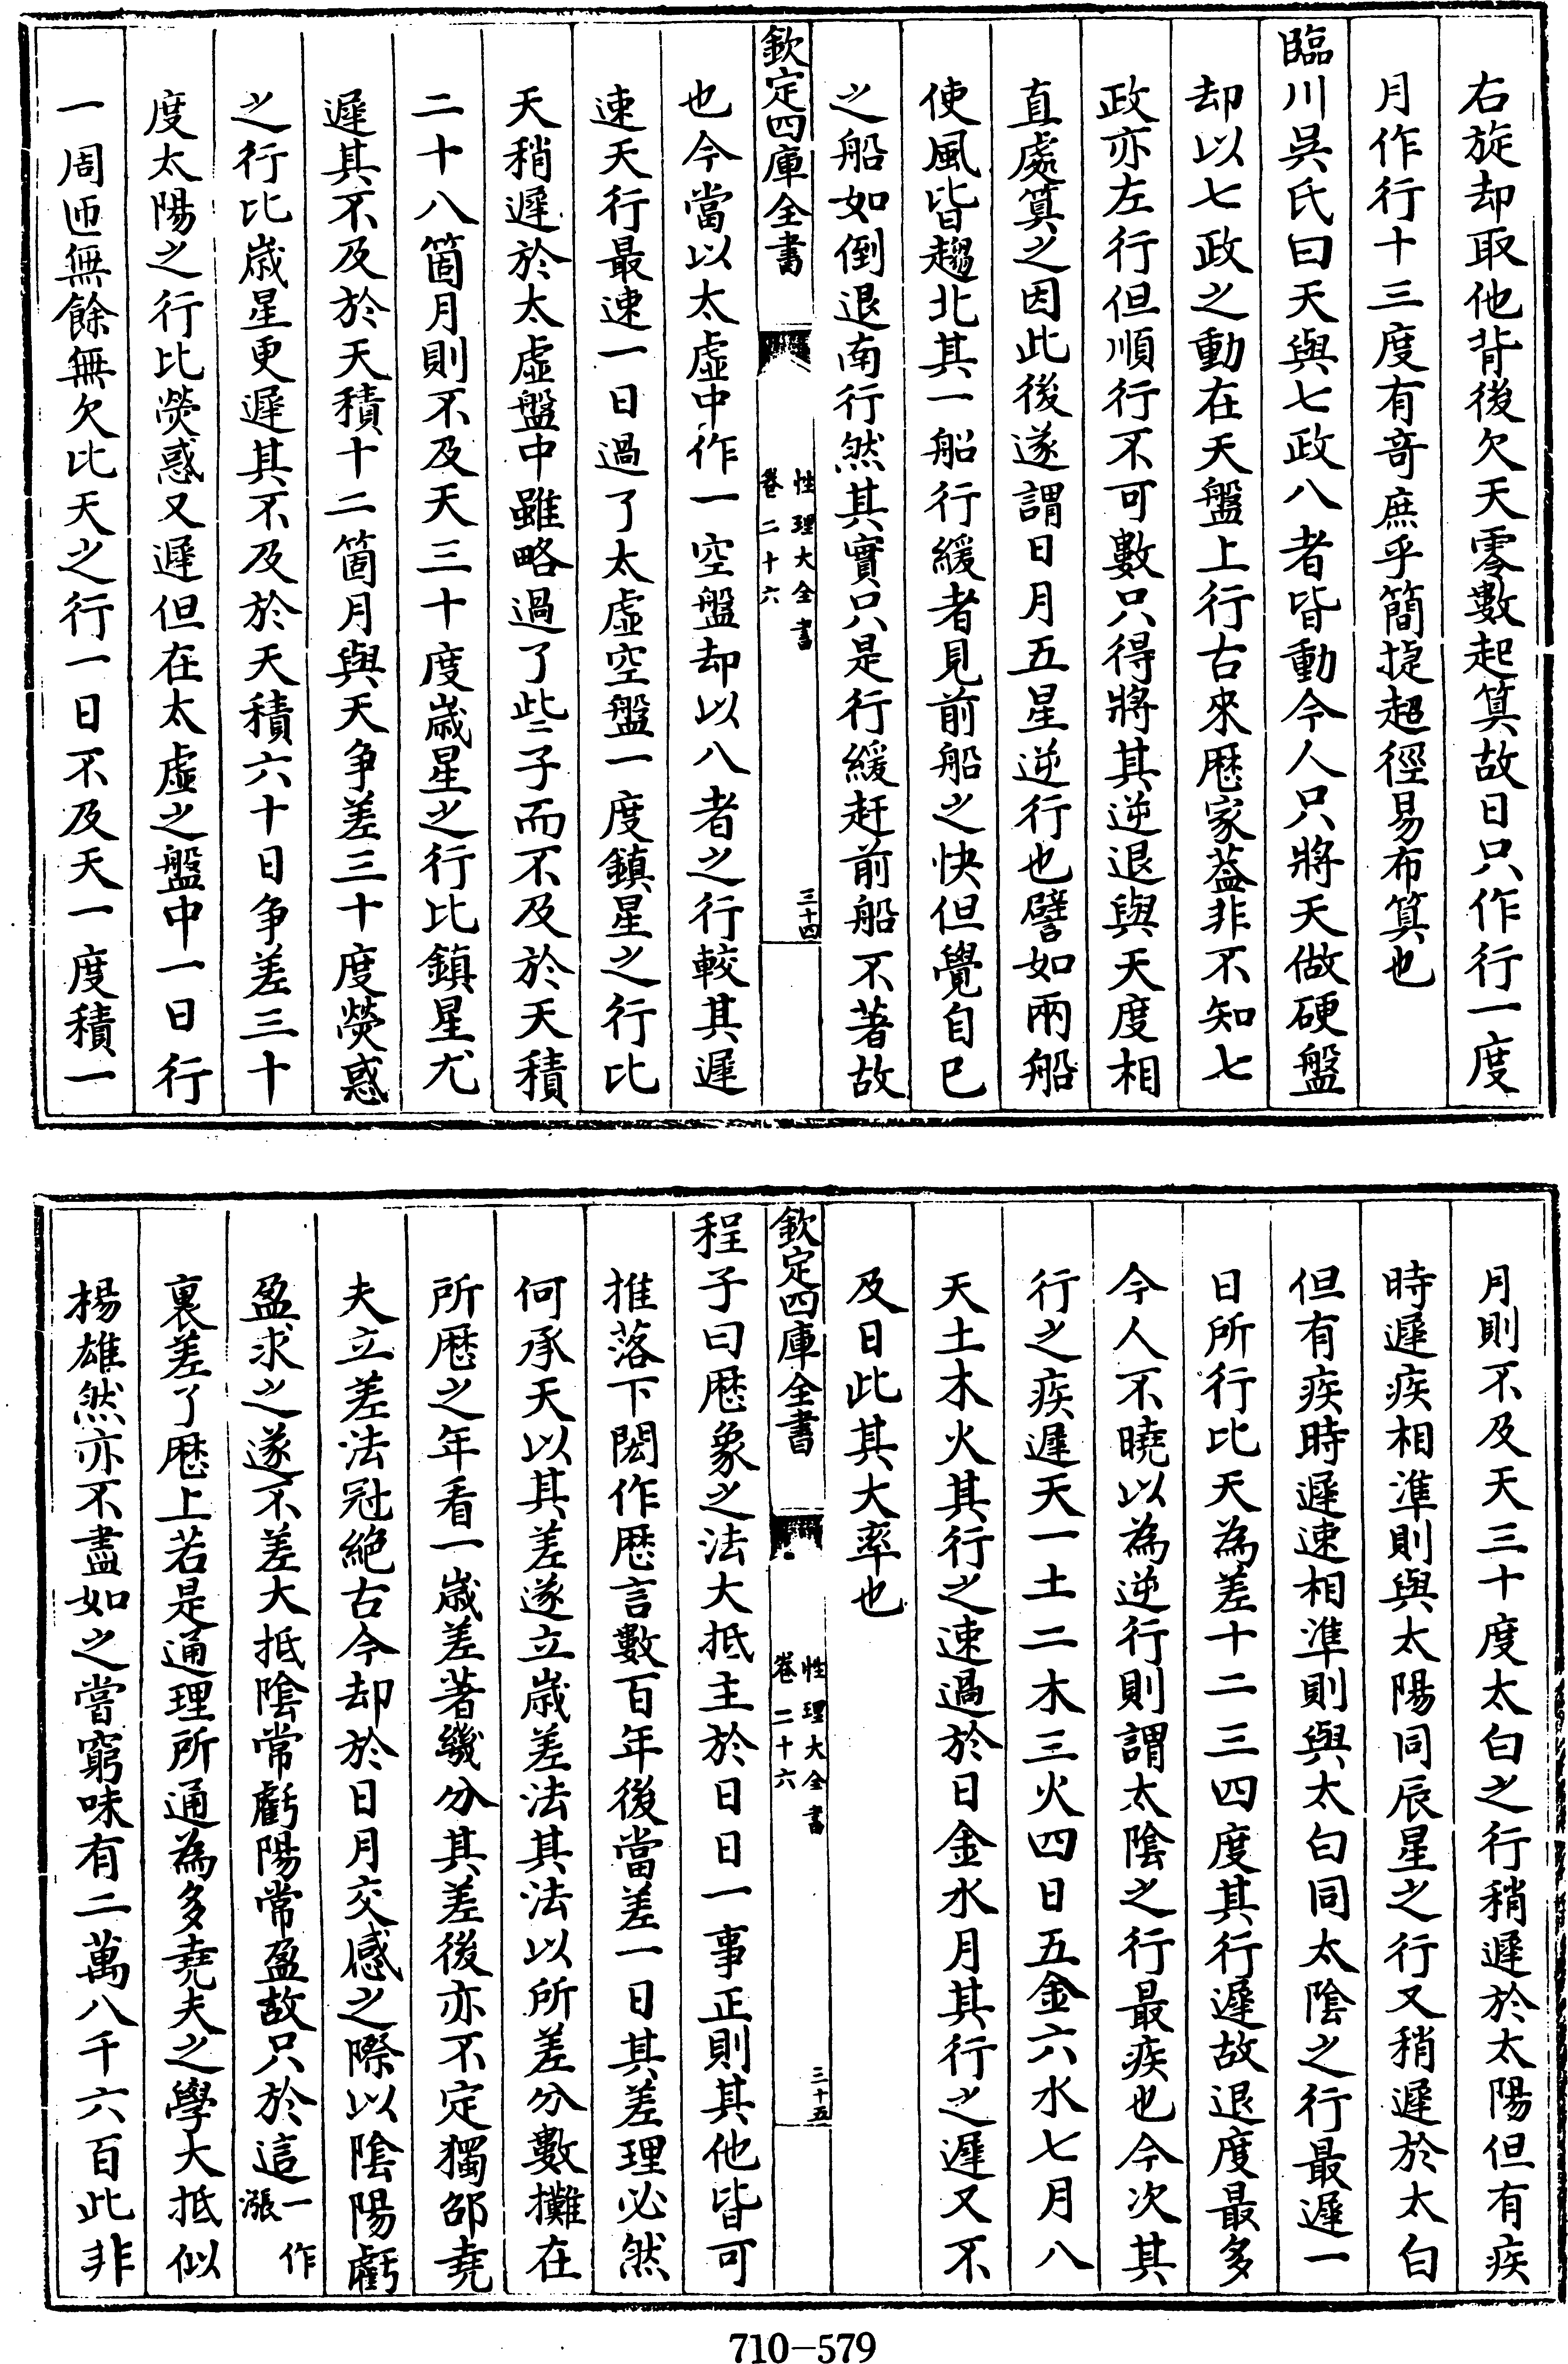 右旋却取他背後欠天零數起算故日只作行一度
月作行十三度有竒庶乎簡捷超徑易布算也
臨川吳氏曰天與七政八者皆動今人只將天做硬盤
却以七政之動在天盤上行古來厯家葢非不知七
政亦左行但順行不可數只得將其逆退與天度相
直處算之因此後遂謂日月五星逆行也譬如兩船
使風皆趨北其一船行緩者見前船之快但覺自已
之船如倒退南行然其實只是行緩赶前船不著故
欽定四庫全書
性理大全書
卷二十六
三十四
也今當以太虛中作一空盤却以八者之行較其遲
速天行最速一日過了太虛空盤一度鎮星之行比
天稍遲於太虛盤中雖略過了些子而不及於天積
二十八箇月則不及天三十度嵗星之行比鎮星尤
遲其不及於天積十二箇月與天争差三十度熒惑
之行比嵗星更遲其不及於天積六十日争差三十
度太陽之行比熒惑又遲但在太虛之盤中一日行
一周匝無餘無欠比天之行一日不及天一度積一
月則不及天三十度太白之行稍遲於太陽但有疾
時遲疾相準則與太陽同辰星之行又稍遲於太白
但有疾時遲速相準則與太白同太陰之行最遲一
日所行比天為差十二三四度其行遲故退度最多
今人不曉以為逆行則謂太陰之行最疾也今次其
行之疾遲天一土二木三火四日五金六水七月八
天土木火其行之速過於日金水月其行之遲又不
及日此其大率也
欽定四庫全書
性理大全書
卷二十六
三十五
程子曰厯象之法大抵主於日日一事正則其他皆可
推落下閎作厯言數百年後當差一日其差理必然
何承天以其差遂立嵗差法其法以所差分數攤在
所厯之年看一嵗差著幾分其差後亦不定獨邵堯
夫立差法冠絶古今却於日月交感之際以陰陽虧
盈求之遂不差大抵陰常虧陽常盈故只於這一作漲
裏差了厯上若是通理所通為多堯夫之學大抵似
楊雄然亦不盡如之嘗窮味有二萬八千六百此非
710-579